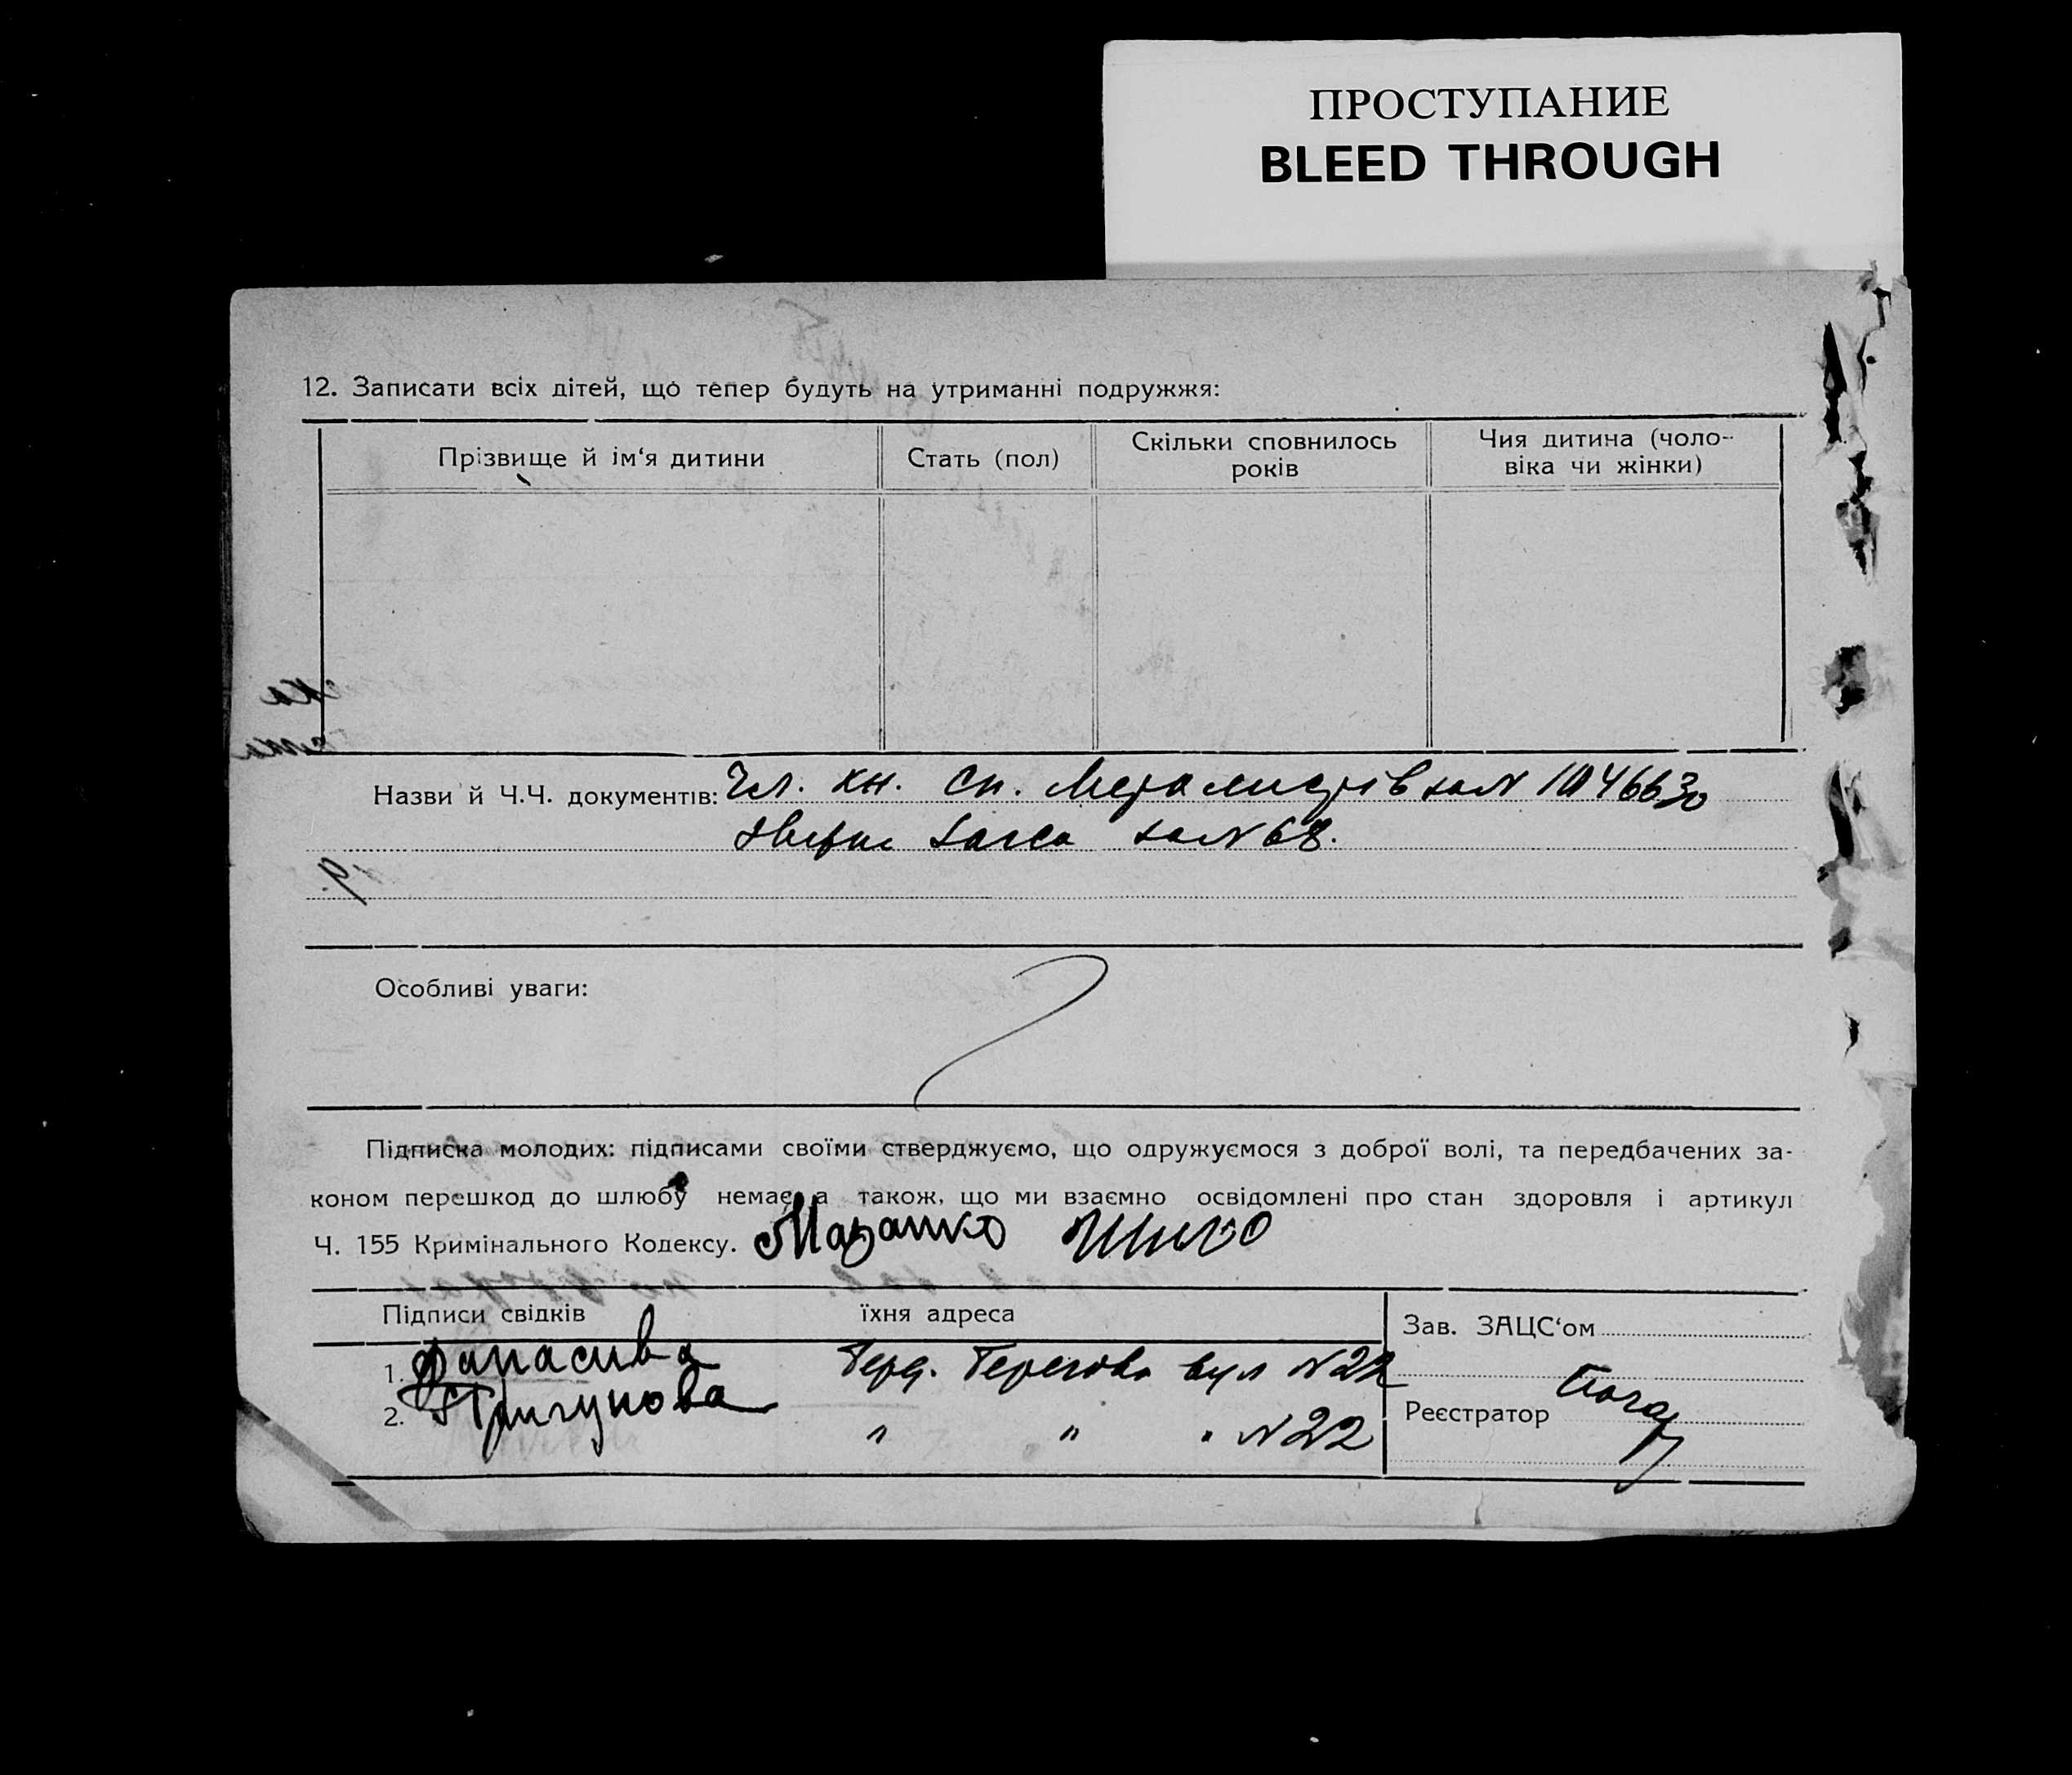 ПРОСТУПАНИЕ
BLEED THROUGH
12. Записати всіх дітей, що тепер будуть на утриманні подружжя:
Прізвище й ім‘я дитини
Стать (пол)
Скільки сповнилось
років
Чия дитина (чоло-
віка чи жінки)
Назви й Ч.Ч. документів: Чл. кн. Сп. Металистів за N 1046630
за N 68.
Особливі уваги:
Підписка молодих: підписами своїми стверджуємо, що одружуємося з доброї волі, та передбачених за-
коном перешкод до шлюбу немає, а також, що ми взаємно освідомлені про стан здоровля і артикул
Ч. 155 Кримінального Кодексу.
Підписи свідків
їхня адреса
1. вул N 22
2. " " " N 22
Зав. ЗАЦС‘ом
Реєстратор